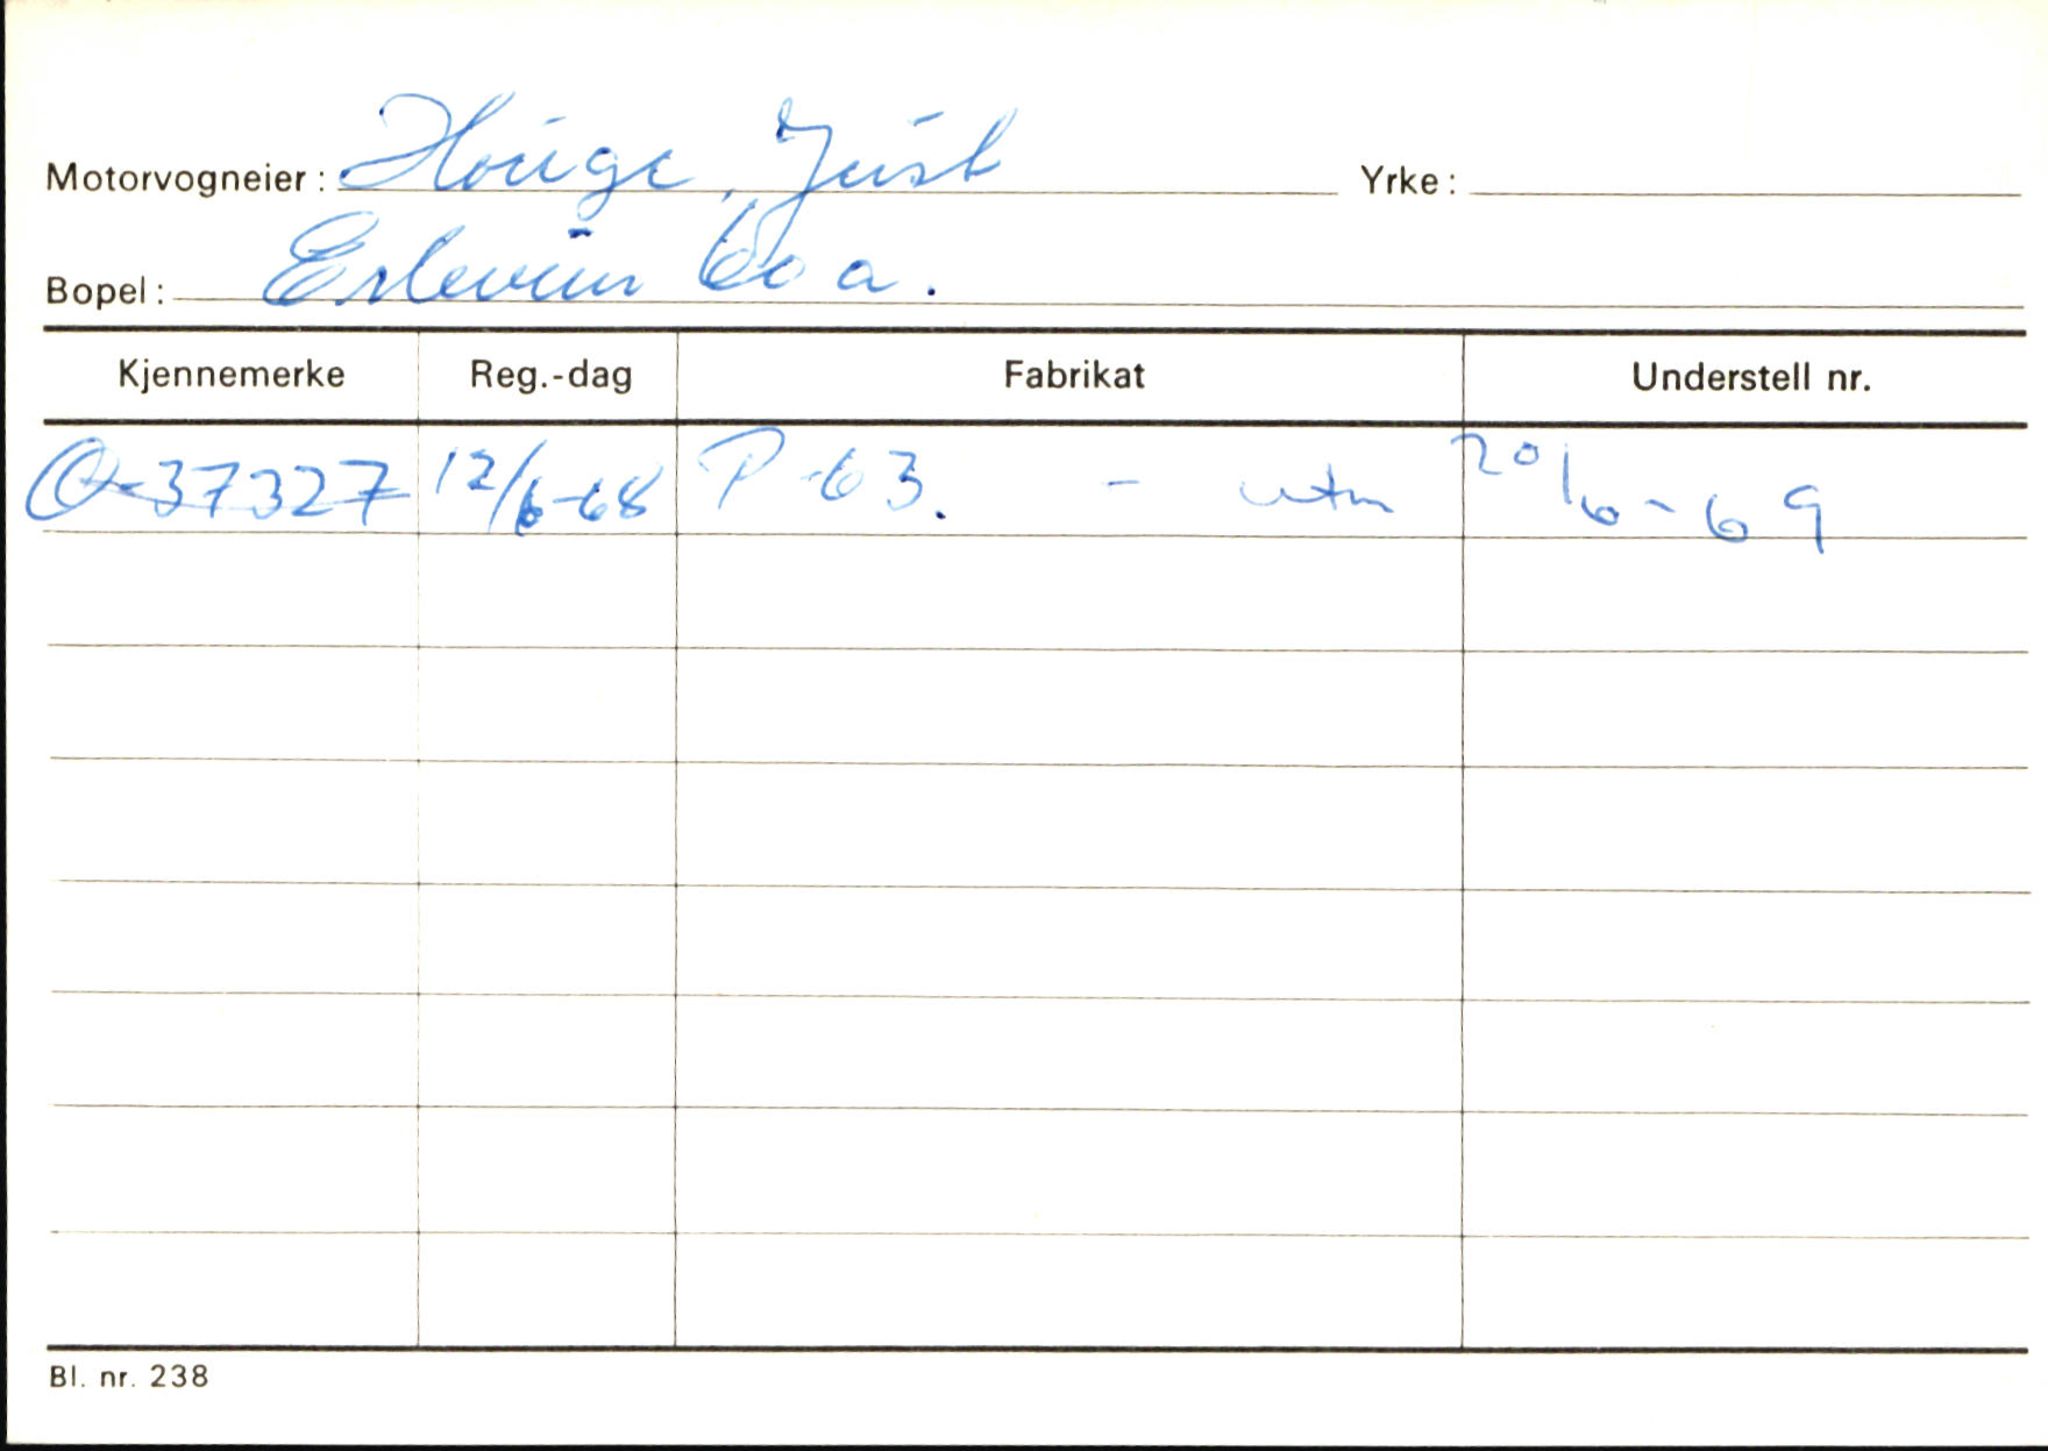 Motorvogneier: Houge, Just Yrke:
Bopel: Erleveien 60 a.
Kjennemerke Reg.-dag Fabrikat Understell nr.
O-37327 12/6-68 P-63. - utm 20/6-69
Bl. nr. 238